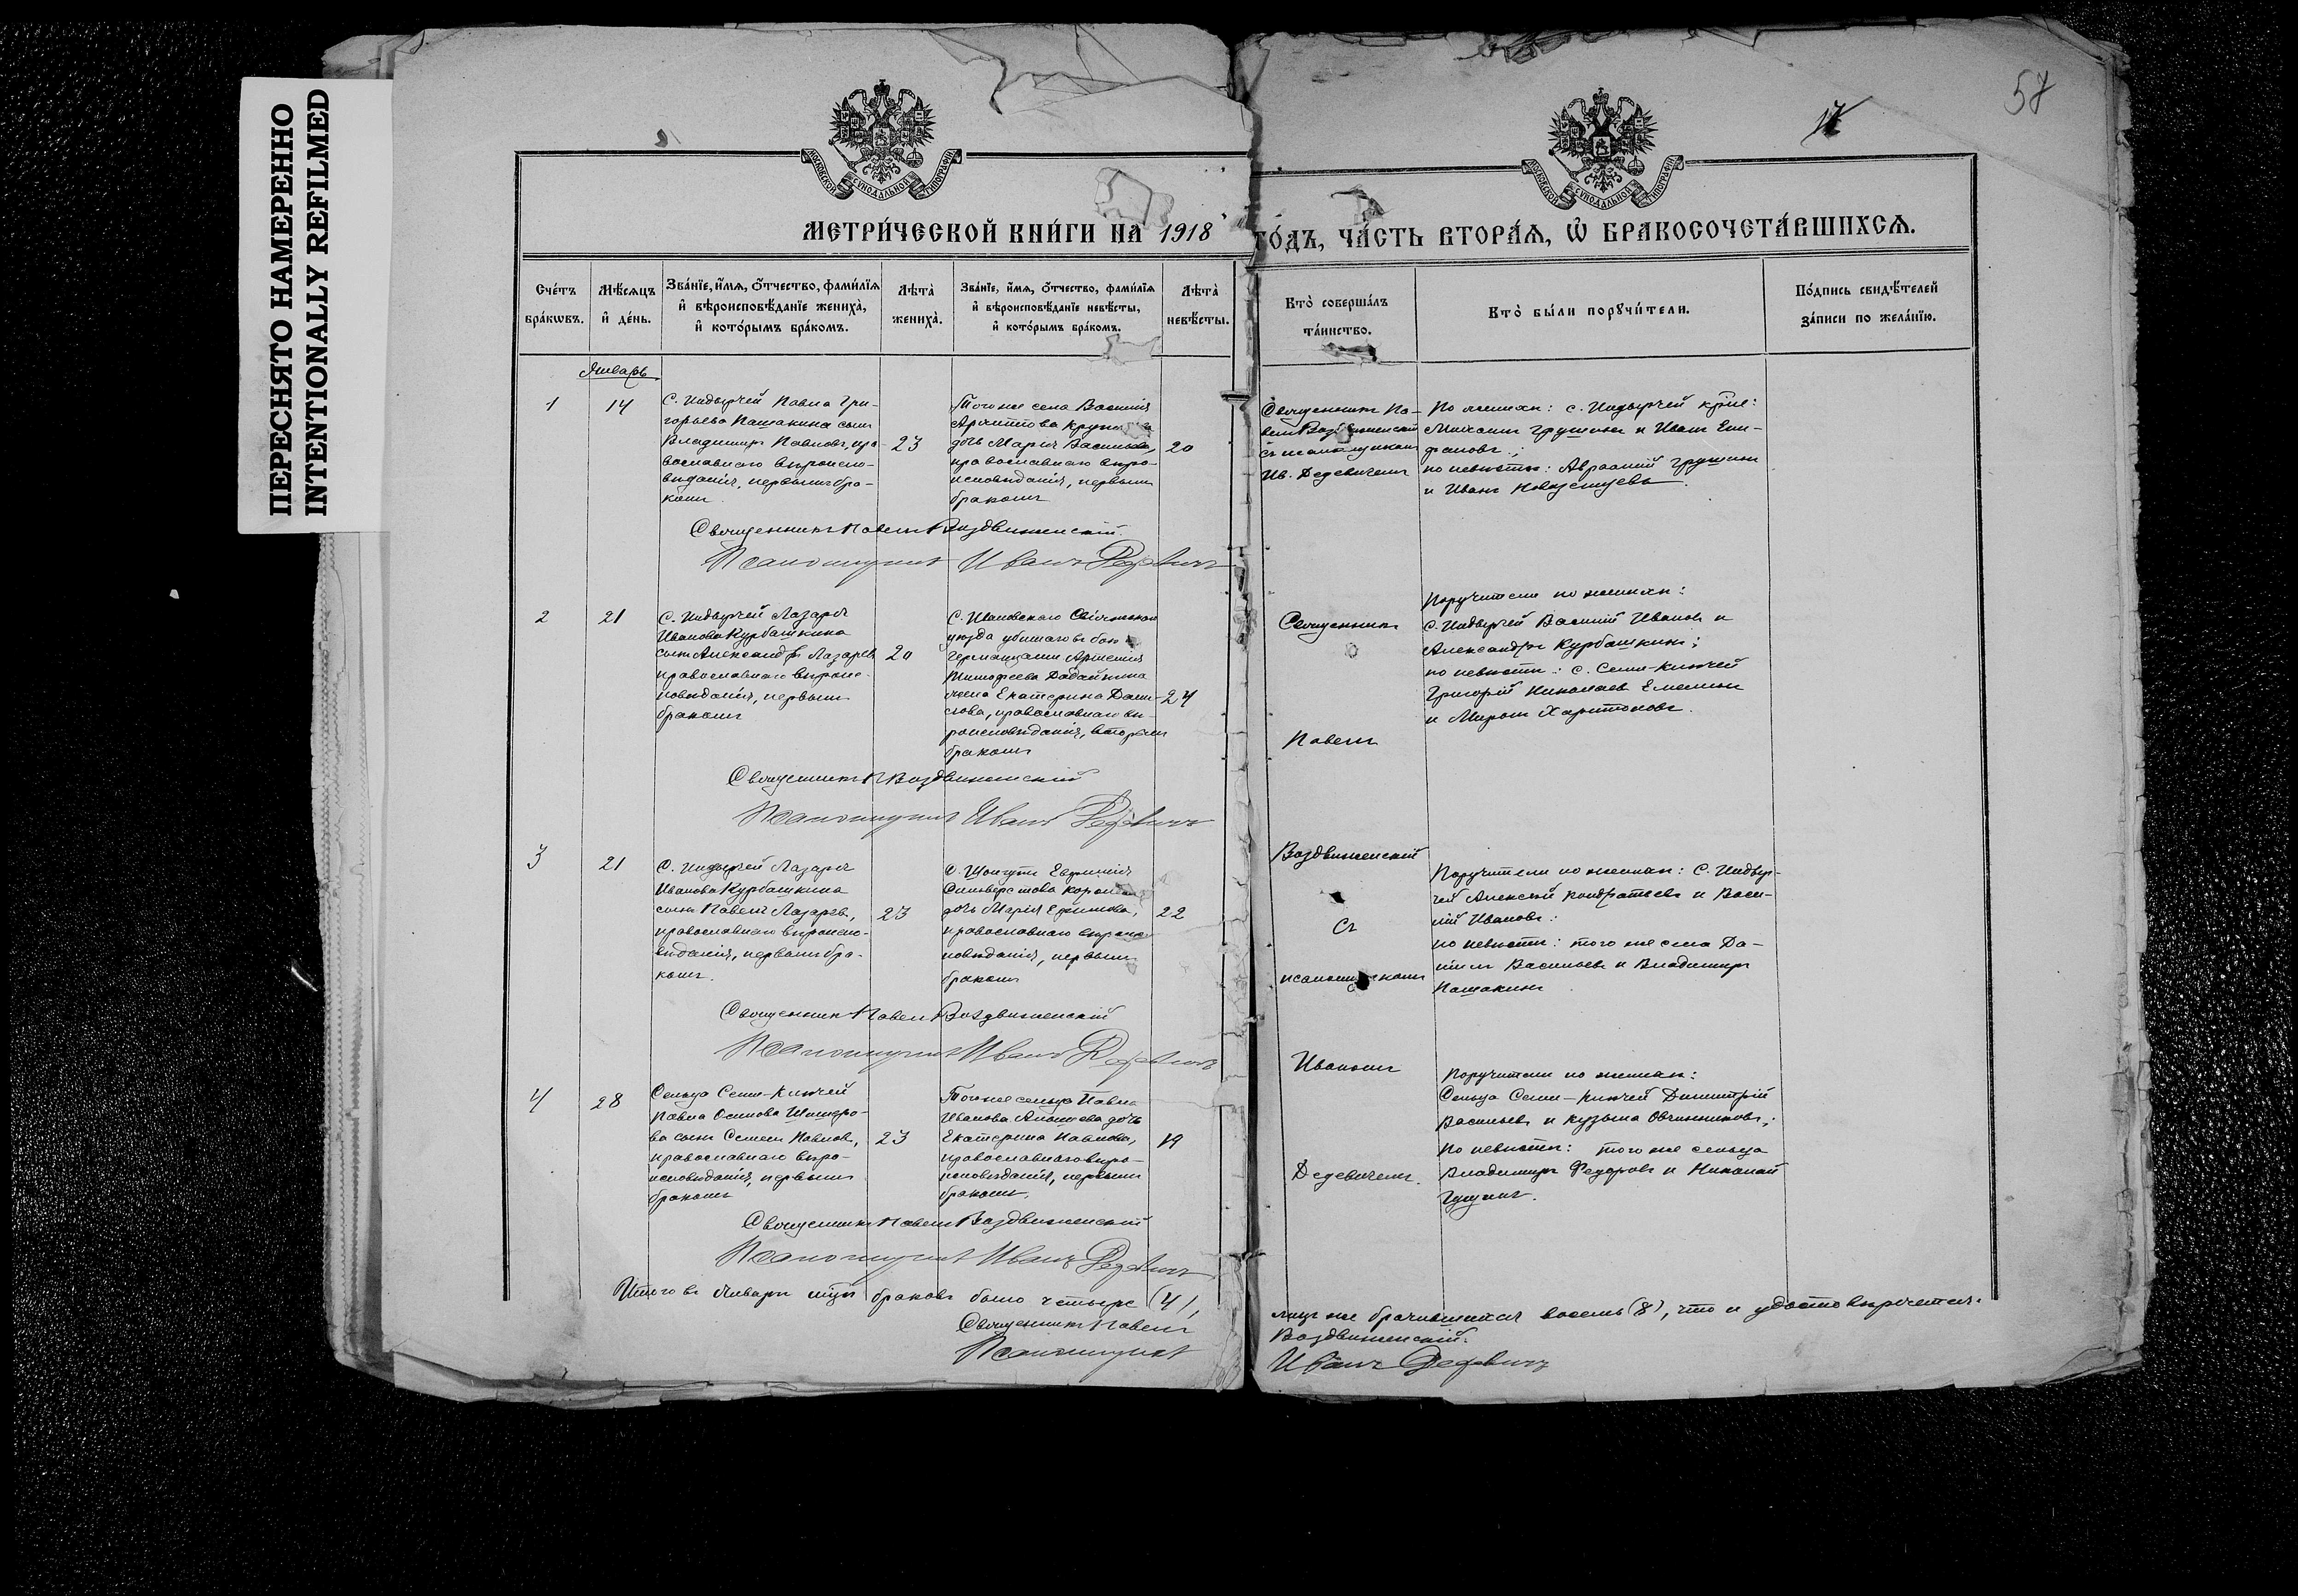 ПЕРЕСНЯТО НАМЕРЕННО
INTENTIONALLY REFILMED
57
17
МОСКОВСКОЙ СѴНОДАЛЬНОЙ ТИПОГРАФІИ
МОСКОВСКОЙ СѴНОДАЛЬНОЙ ТИПОГРАФІИ
МЕТРИ́ЧЕСКОЙ КНИ́ГИ НА 1918
ГО́ДЪ, ЧА́СТЬ ВТОРА́Я, Ѽ БРАКОСОЧЕТА́ВШИХСѦ.
Сче́тъ бра́кѡвъ.
Мѣ́сяцъ и҆ де́нь.
Зва́нїе, и҆́мя, ѻ҆́тчество, фами́лїя и҆ вѣроисповѣ́данїе жениха̀, и҆ кото́рымъ бра́комъ.
Лѣта̀ жениха̀.
Зва́нїе, и҆́мя, ѻ҆́тчество, фами́лїя и҆ вѣроисповѣ́данїе невѣ́сты, и҆ кото́рымъ бра́комъ.
Лѣта̀ невѣ́сты.
Кто̀ соверша́лъ та́инство.
Кто̀ бы́ли порꙋчи́тели.
По́дпись свидѣ́телей за́писи по жела́нїю.
Январь
1
14
С. Индырчей Павла Гри-
горьева Пашакина сынъ
Владимиръ Павловъ, пра-
вославнаго вѣроиспо-
вѣданія, первымъ бра-
комъ.
23
Того же села Василія
дочь Марія Васильева,
православнаго вѣро-
исповѣданія, первымъ
бракомъ
20
Священникъ Па-
велъ Воздвиженскій
съ псаломщикомъ
Ив. Дедевичемъ
По женихѣ: с. Индырчей крие:
Михаилъ Грушинъ и Иванъ Епи-
фановъ.;
по невѣстѣ: Авраамій Грушинъ
и Иванъ
Священникъ Павелъ Воздвиженскій.
Псаломщикъ Иванъ Дедевичъ
2
21
С. Индырчей Лазаря
Иванова Курбашкина
сынъ Александръ Лазаревъ
православнаго вѣроис-
повѣданія, первымъ
бракомъ
20
С. Ивановскаго
уѣзда убитаго въ бою
Германцами Артемія
Тимофеева
жена Екатерина Дани-
лова, православнаго вѣ-
роисповѣданія, вторымъ
бракомъ
24
Священникъ
Павелъ
Поручители по женихѣ:
С. Индырчей Василій Ивановъ и
Александръ Курбашкинъ;
по невѣстѣ: с. Семи-Ключей
Григорій Николаевъ Емелинъ
и Миронъ Харитоновъ.
Священникъ П Воздвиженскій
Псаломщикъ Иванъ Дедевичъ
3
21
С. Индырчей Лазаря
Иванова Курбашкина
сынъ Павелъ Лазаревъ,
православнаго вѣроиспо-
вѣданія, первымъ бра-
комъ.
23
Сильверстова
дочь Марія Ефимова,
православнаго вѣроис-
повѣданія, первымъ
бракомъ
22
Воздвиженскій
Съ
псаломщикомъ
Поручители по женихѣ: С. Индыр-
чей Алексѣй Кондратьевъ и Васи-
лій Ивановъ:
по невѣстѣ: того же села Да-
ніилъ Васильевъ и Владимиръ
Пашакинъ.
Священникъ Павелъ Воздвиженскій
Псаломщикъ Иванъ Дедевичъ
4
28
Сельца Семи-Ключей
Павла Осипова
ва сынъ Семенъ Павловъ,
православнаго вѣро-
исповѣданія, первымъ
бракомъ
23
Того же сельца Павла
Иванова дочь
Екатерина Павлова,
православнаго вѣро-
исповѣданія, первымъ
бракомъ.
19
Иваномъ
Дедевичемъ.
Поручители по женихѣ:
Сельца Семи-Ключей Димитрій
Васильевъ и Кузьма Овчинниковъ;
По невѣстѣ: того же сельца
Владимиръ Федоровъ и Николай
Гущинъ.
Священникъ Павелъ Воздвиженскій
Псаломщикъ Иванъ Дедевичъ
Итого въ Январѣ мцѣ браковъ было четыре (4),
лицъ же брачившихся восемь (8), что и удостовѣряется.
Священникъ Павелъ
Воздвиженскій.
Псаломщикъ
Иванъ Дедевичъ